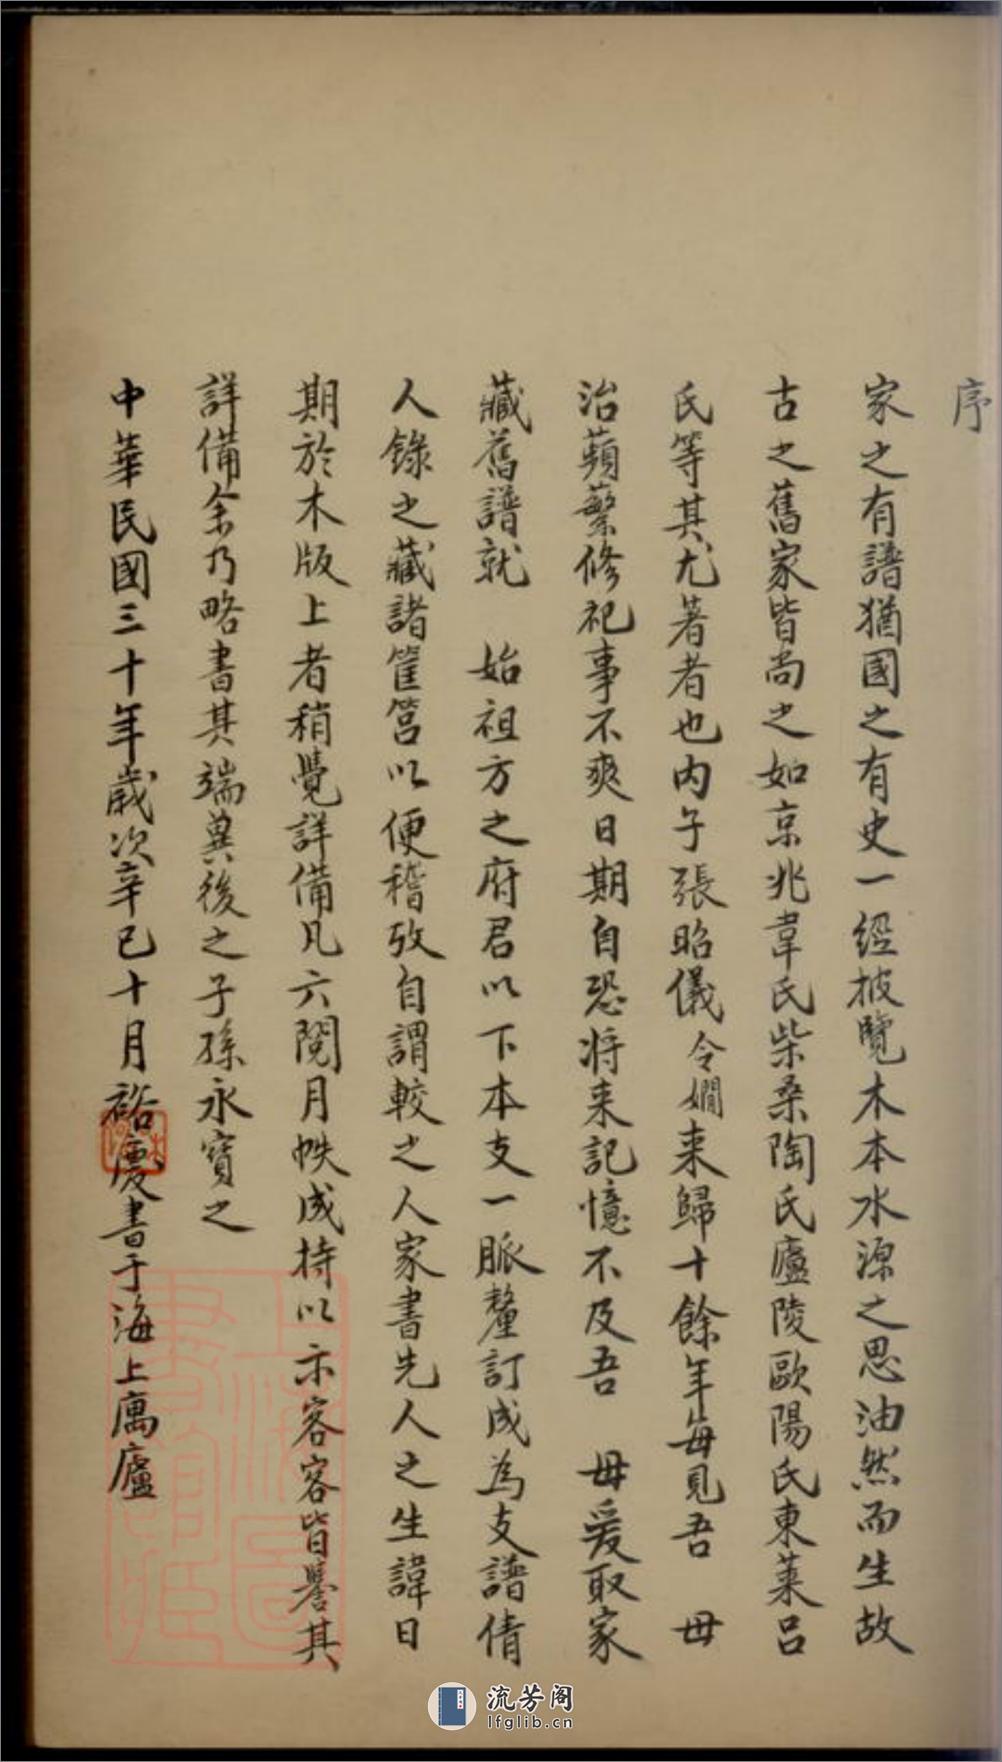 序
家之有譜猶國之有史一經披覽木本水源之思油然而生故
古之舊家皆尚之如京兆韋氏柴桑陶氏廬陵歐陽氏東萊呂
氏等其尤著者也內子張昭儀令嫺來歸十餘年每見吾 毋
治蘋蘩修祀事不爽日期自恐將來記憶不及吾 毋爰取家
藏舊譜就 始祖方之府君以下本支一脈釐訂成為支譜倩
人錄之藏諸筐筥以便稽攷自謂較之人家書先人之生諱日
期於木版上者稍覺詳備凡六閱月帙成持以示客客皆譽其
詳備余乃略書其端冀後之子孫永寶之
中華民國三十年歲次辛巳十月裕慶書于海上寓廬
流芳阁
lfglib.cn